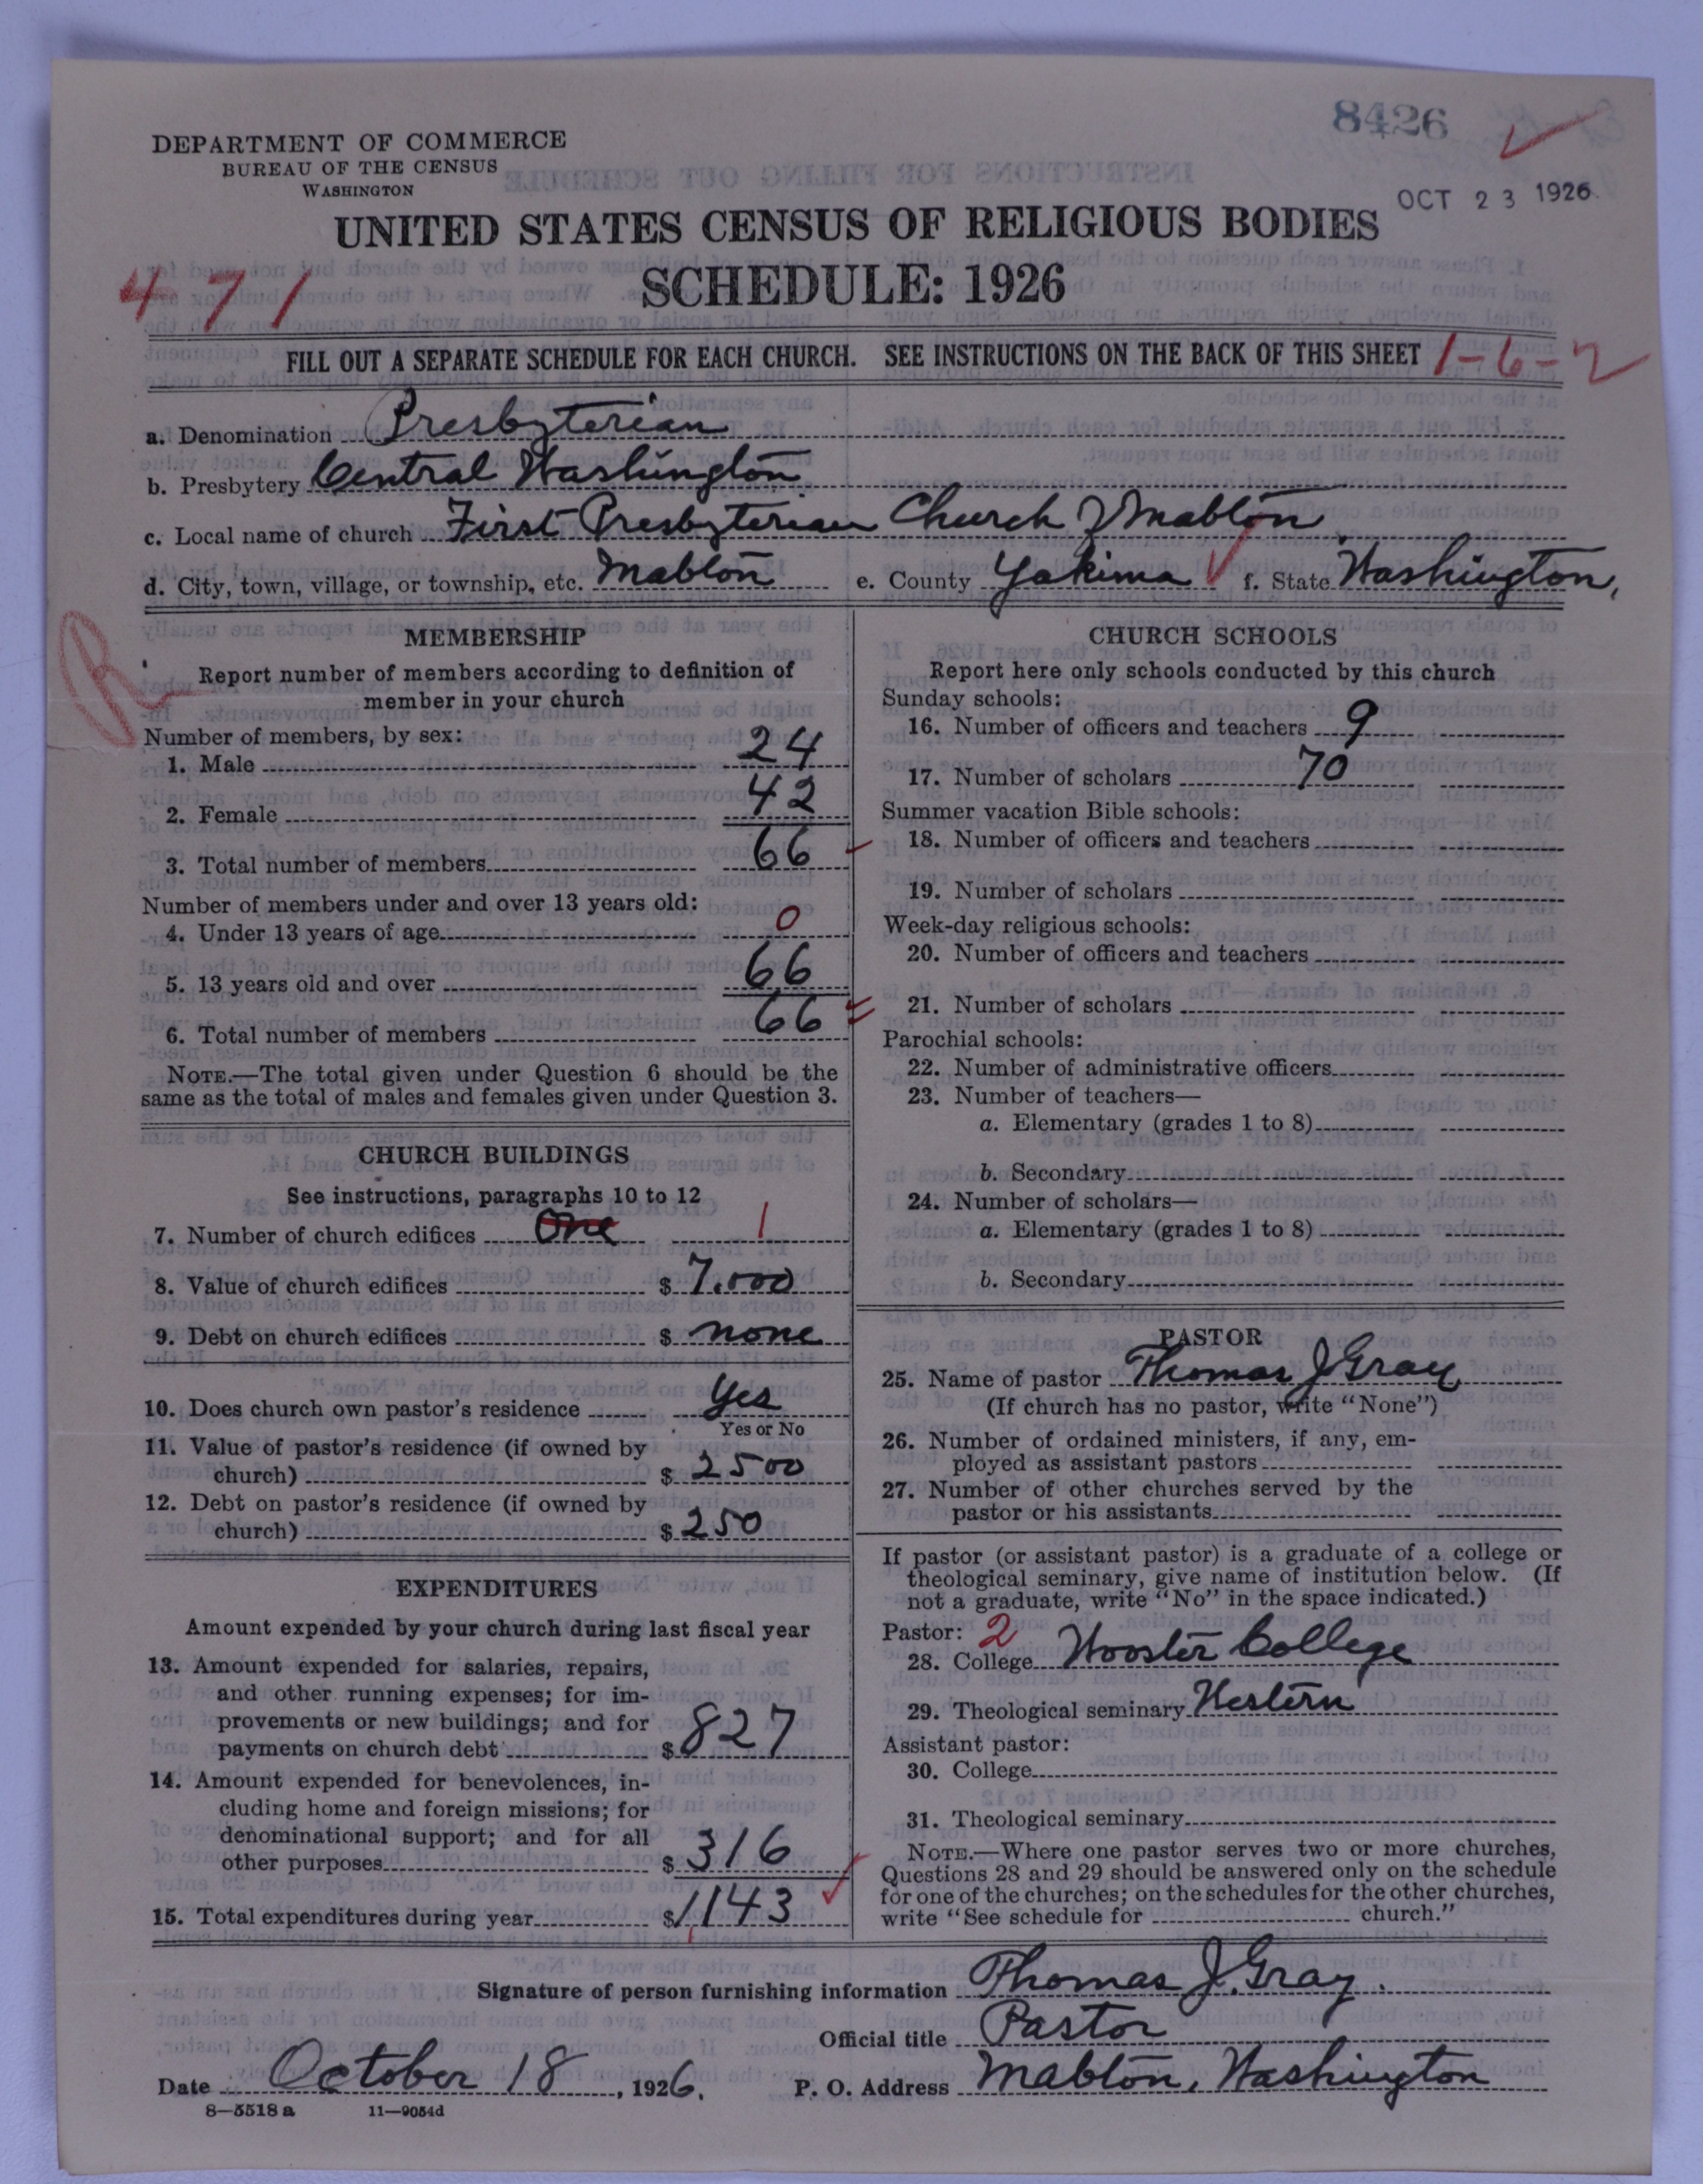 8426
DEPARTMENT OF COMMERCE
BUREAU OF THE CENSUS
WASHINGTON
OCT 23 1926
UNITED STATES CENSUS OF RELIGIOUS BODIES
SCHEDULE: 1926
471
FILL OUT A SEPARATE SCHEDULE FOR EACH CHURCH. SEE INSTRUCTIONS ON THE BACK OF THIS SHEET 1-6-2
a. Denomination Presbyterian
b. Presbytery Central Washington
c. Local name of church First Presbyterian Church of Mabton
d. City, town, village, or township, etc. Mabton e. County Yakima f. State Washington,
MEMBERSHIP
Report number of members according to definition of
member in your church
Number of members, by sex:
1. Male 24
2. Female 42
3. Total number of members 66
Number of members under and over 13 years old:
4. Under 13 years of age 0
5. 13 years old and over 66
6. Total number of members 66
NOTE.—The total given under Question 6 should be the
same as the total of males and females given under Question 3.
CHURCH BUILDINGS
See instructions, paragraphs 10 to 12
7. Number of church edifices One 1
8. Value of church edifices $ 7.000
9. Debt on church edifices $ none
10. Does church own pastor's residence Yes
Yes or No
11. Value of pastor's residence (if owned by
church) $ 2500
12. Debt on pastor's residence (if owned by
church) $ 250
EXPENDITURES
Amount expended by your church during last fiscal year
13. Amount expended for salaries, repairs,
and other running expenses; for im-
provements or new buildings; and for
payments on church debt $ 827
14. Amount expended for benevolences, in-
cluding home and foreign missions; for
denominational support; and for all
other purposes $ 316
15. Total expenditures during year $ 1,143
CHURCH SCHOOLS
Report here only schools conducted by this church
Sunday schools:
16. Number of officers and teachers 9
17. Number of scholars 70
Summer vacation Bible schools:
18. Number of officers and teachers
19. Number of scholars
Week-day religious schools:
20. Number of officers and teachers
21. Number of scholars
Parochial schools:
22. Number of administrative officers
23. Number of teachers—
a. Elementary (grades 1 to 8)
b. Secondary
24. Number of scholars—
a. Elementary (grades 1 to 8)
b. Secondary
PASTOR
25. Name of pastor Thomas J Gray
(If church has no pastor, write "None")
26. Number of ordained ministers, if any, em-
ployed as assistant pastors
27. Number of other churches served by the
pastor or his assistants
If pastor (or assistant pastor) is a graduate of a college or
theological seminary, give name of institution below. (If
not a graduate, write "No" in the space indicated.)
Pastor: 2
28. College Wooster College
29. Theological seminary Western
Assistant pastor:
30. College
31. Theological seminary
NOTE.—Where one pastor serves two or more churches,
Questions 28 and 29 should be answered only on the schedule
for one of the churches; on the schedules for the other churches,
write "See schedule for church."
Signature of person furnishing information Thomas J. Gray.
Official title Pastor
Date October 18, 1926. P. O. Address Mabton, Washington
8—5518 a 11—9054d